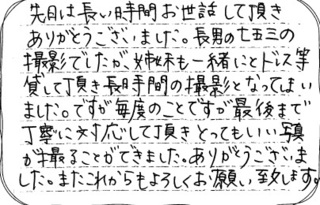 先日は長い時間お世話して頂き
ありがとうございました。長男の七五三の
撮影でしたが姉妹も一緒にとドレス等
貸して頂き長時間の撮影となってしまい
ました。ですが毎度のことですが最後まで
丁寧に対応して頂きとってもいい写真
が撮ることができました。ありがとうございま
した。またこれからもよろしくお願い致します。